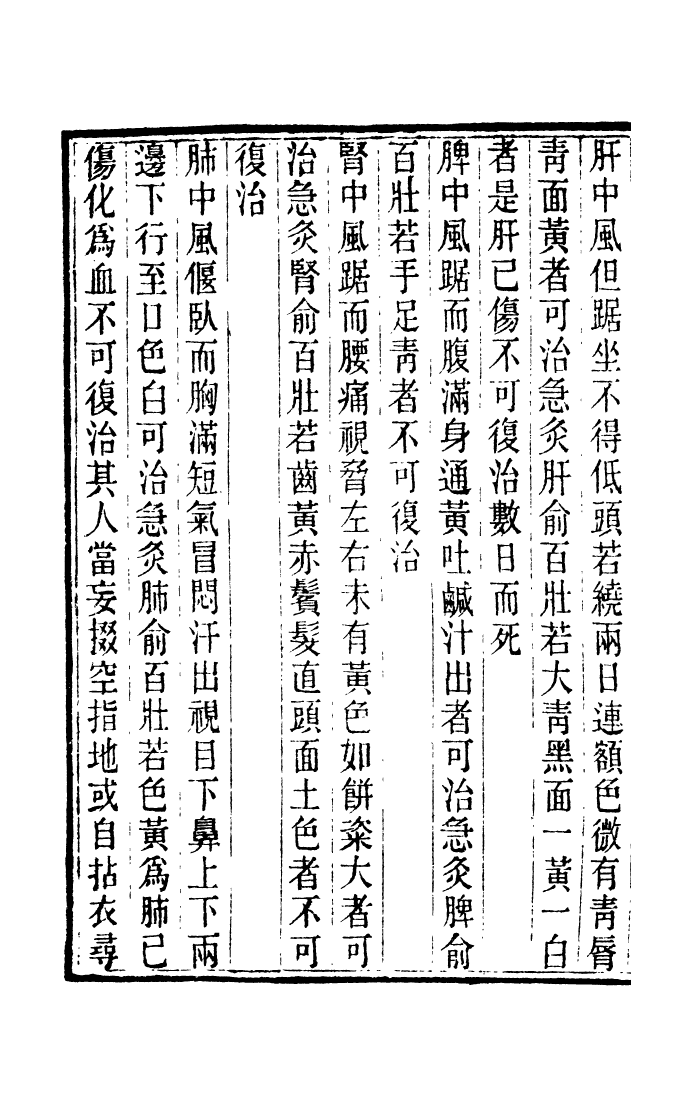 肝中風但踞坐不得低頭若繞兩日連額色微有靑脣
靑面黃者可治急灸肝俞百壯若大靑黑面一黃一白
者是肝已傷不可復治數日而死
脾中風踞而腹滿身通黃吐鹹汁出者可治急灸脾俞
百壯若手足靑者不可復治
腎中風踞而腰痛視脅左右未有黃色如餅粢大者可
治急灸腎俞百壯若齒黃赤鬢髮直頭面土色者不可
復治
肺中風偃臥而胸滿短氣冒悶汗出視目下鼻上下兩
邊下行至口色白可治急灸肺俞百壯若色黃爲肺已
傷化爲血不可復治其人當妄掇空指地或自拈衣尋